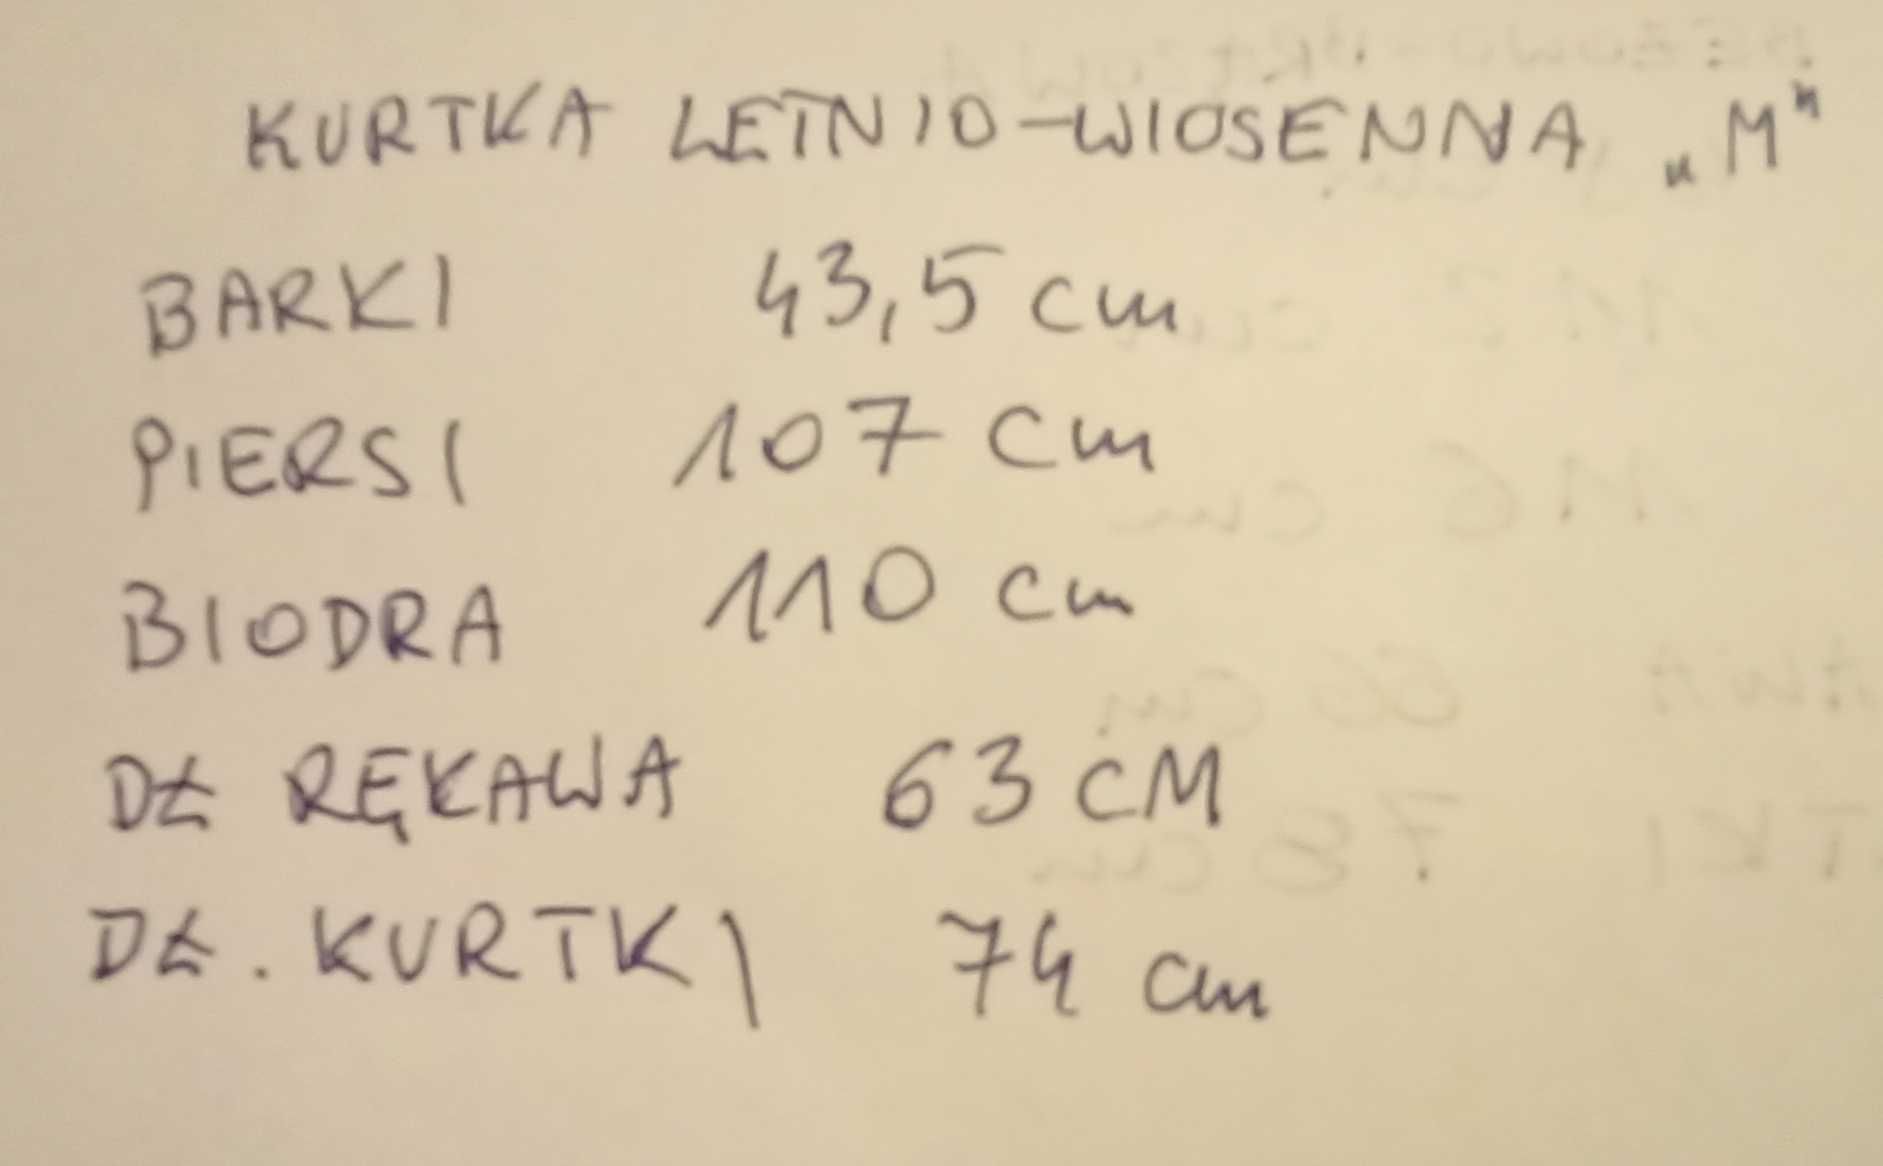 KURTKA LETNIO-WIOSENNA „M"
BARKI 43,5 cm
PIERSI 107 cm
BIODRA 110 cm
DŁ RĘKAWA 63 CM
DŁ. KURTKI 74 cm